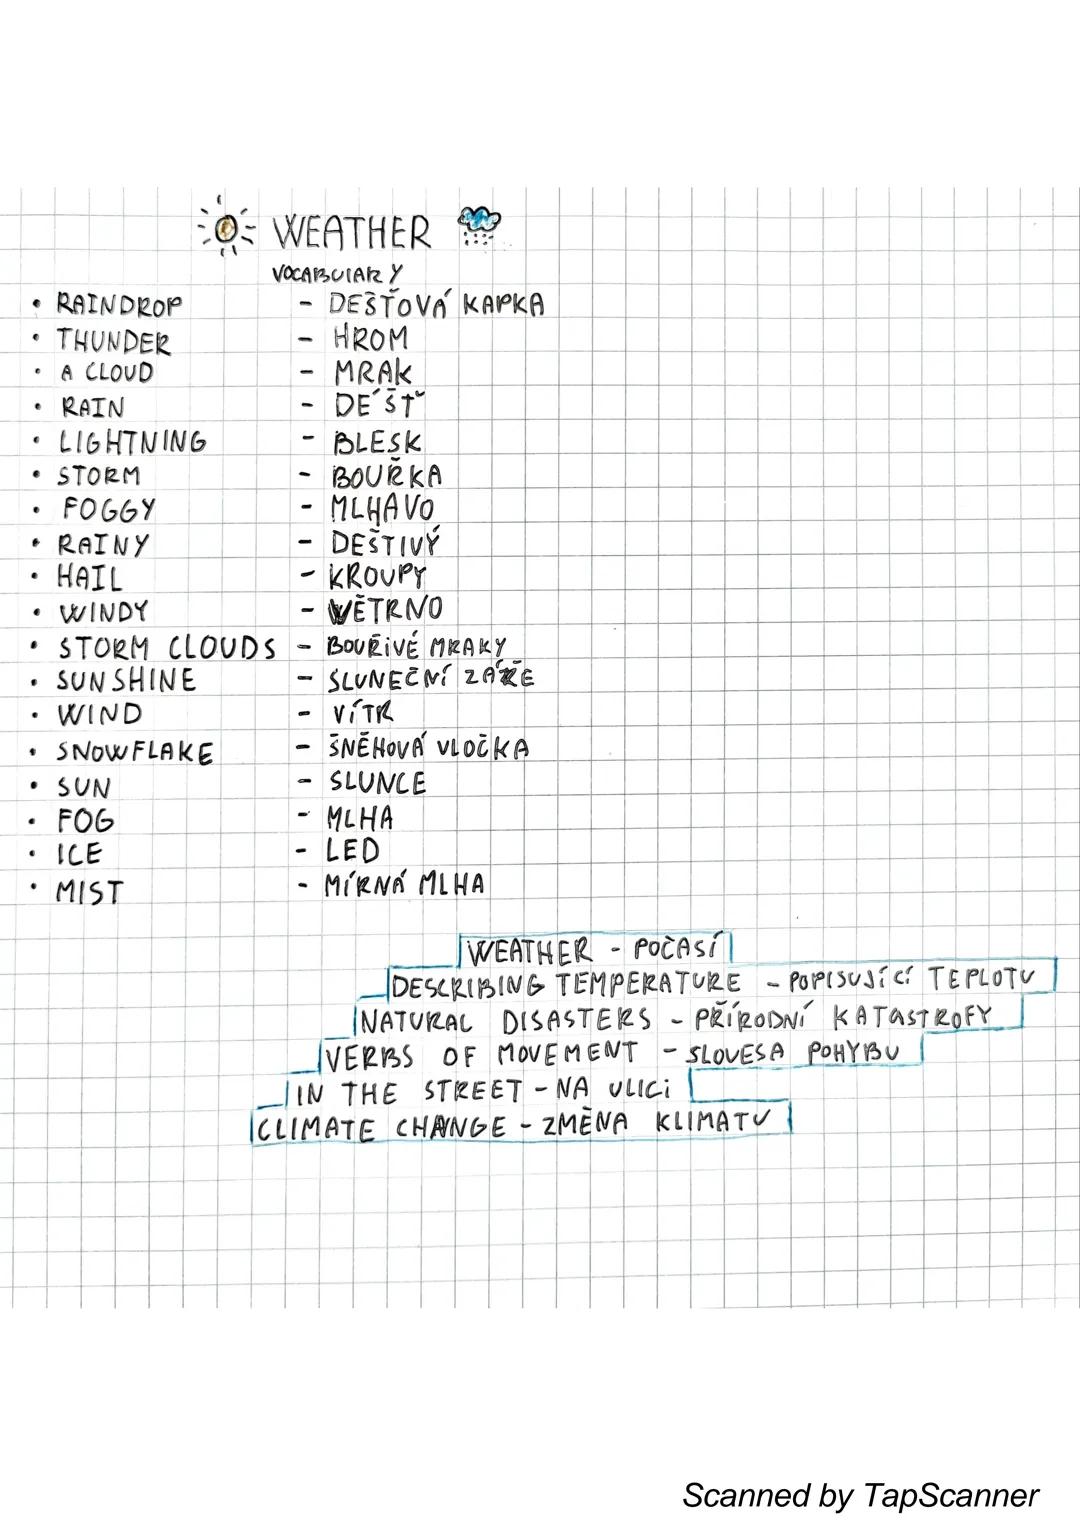 WEATHER
VOCABULARY
• RAINDROP - DEŠŤOVÁ KAPKA
• THUNDER - HROM
• A CLOUD - MRAK
• RAIN - DÉŠŤ
• LIGHTNING - BLESK
• STORM - BOUŘKA
• FOGGY - MLHAVO
• RAINY - DEŠTIVÝ
• HAIL - KROUPY
• WINDY - VĚTRNO
• STORM CLOUDS - BOUŘIVÉ MRAKY
• SUNSHINE - SLUNEČNÍ ZÁŘE
• WIND - VÍTR
• SNOWFLAKE - ŠNĚHOVÁ VLOČKA
• SUN - SLUNCE
• FOG - MLHA
• ICE - LED
• MIST - MÍRNÁ MLHA
WEATHER - POČASÍ
DESCRIBING TEMPERATURE - POPISUJÍCÍ TEPLOTU
NATURAL DISASTERS - PŘÍRODNÍ KATASTROFY
VERBS OF MOVEMENT - SLOVESA POHYBU
IN THE STREET - NA ULICI
CLIMATE CHANGE - ZMĚNA KLIMATU
Scanned by TapScanner